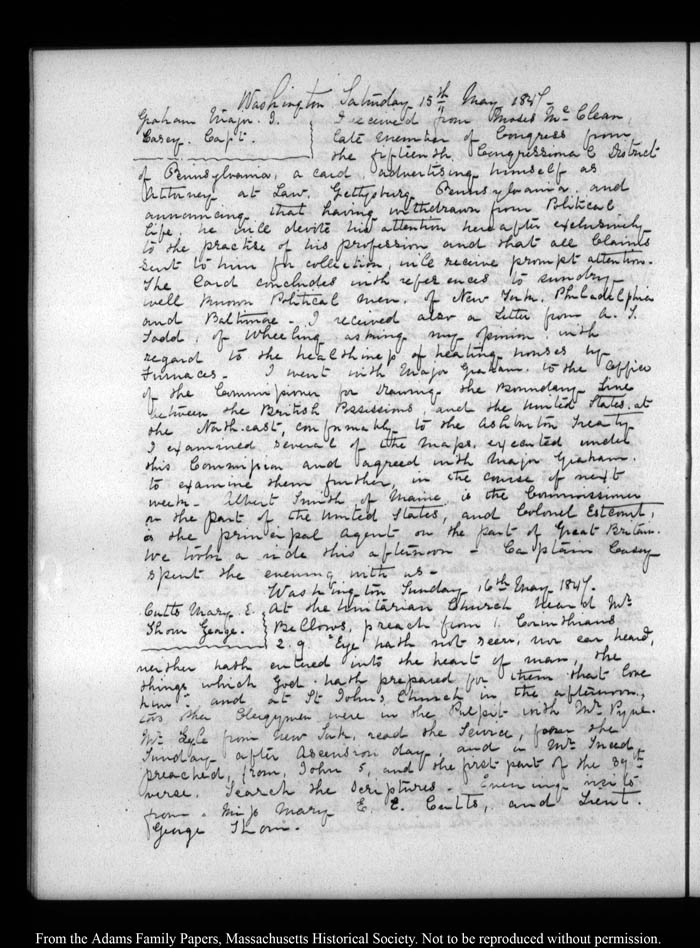 Washington Saturday 15th May 1847.
Graham Major. J.
Casey. Capt.
I received from Moses McClean,
late member of Congress from
the fifteenth Congressional District
of Pennsylvania, a card advertising himself as
Attorney at Law, Gettysburg Pennsylvania. and
announcing that having withdrawn from Political
life, he will devote his attention hereafter exclusively
to the practise of his profession and that all Claims
sent to him for collection, will receive prompt attention.
The Card concludes with references to sundry
well known Political men, of New York, Philadelphia
and Baltimore - I received also a Letter from A. S.
Todd, of Wheeling asking my opinion with
regard to the healthiness of heating houses by
Furnaces - I went with Major Graham to the Office
of the Commissioner for drawing the Boundary Line
between the British Possessions, and the United States, at
the North-east, conformably to the Ashburton Treaty
I examined several of the maps, executed under
this Commission and agreed with Major Graham.
to examine them further, in the course of next
week - Albert Smith of Maine, is the Commissioner
on the part of the United States, and Colonel Estcourt,
is the principal Agent on the part of Great Britain.
We took a ride this afternoon - Captain Casey
spent the evening with us -
Washington Sunday 16th May 1847.
Cutts Mary E.
Thom George.
At the Unitarian Church heard Mr
Bellows, preach from 1. Corinthians
2. 9 "Eye hath not seen, nor ear heard,
neither hath entered into the heart of man, the
things which God hath prepared for them that love
him." and at St John's Church in the afternoon,
two other Clergymen were in the Pulpit with Mr Pyne.
Mr from New York, read the Service, for the
Sunday after Ascension day, and a Mr
preached, from, John 5, and the first part of the 39th
verse. Search the Scriptures - Evening visits
from - Miss Mary E. E. Cutts, and Lieut.
George Thom.
From the Adams Family Papers, Massachusetts Historical Society. Not to be reproduced without permission.